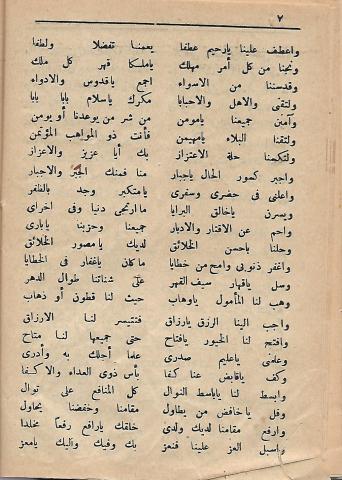 ٧
واعطف علينا يارحيم عطفا يعمنا تفضلا ولطفا
ونجنا من كل أمر مهلك ياملكا قهر كل ملك
وقدسننا من الاسواء اجمع ياقدوس والادواء
ولتقنى والاهل والاحبابا مكرك ياسلام بابا بابا
وآمنن جميعنا يامومن من شر من يوعدنا أو يومن
ولتقنا البلاء يامهيمن فأنت ذو المواهب المؤتمن
ولتكسنا حلة الاعتزاز بك أيا عزيز والاعزاز
واجبر كسور الحال ياجبار منا فمنك الجبر والاجبار
واعلنى فى حضرى وسفرى يامتكبر وجد بالظفر
ويسرن ياخالق البرايا ماارتجى دنيا وفى اخراى
واحم عن الاقتار والادبار جميعنا وحزبنا يابارى
وحلنا باحسن الخلائق لديك يا مصور الخلائق
واغفر ذنوبى وامح من خطايا ماكان ياغفار فى الخطايا
وسل ياقهار سيف القهر على شناتنا طوال الدهر
وهب لنا المأمول ياوهاب حيث لنا قطون أو ذهاب
واجب الينا الرزق يارزاق فتتيسر لنا الارزاق
وافتح لنا الخيور يافتاح حتى جميعها لنا متاح
وعلمنى ياعليم صدرى علما أجلك به وأدرى
وكف ياقابض عنا كفا بأس ذوى العداء والاكفا
وابسط لنا ياباسط النوال كل المنافع على توال
وفل يا خافض من يطاول مقامنا وخفضنا يحاول
وارفع مقامنا لديك ولدى خلقك يارافع رفعا مخلدا
واسبل العز علينا فنعز بك وفيك واليك يامعز